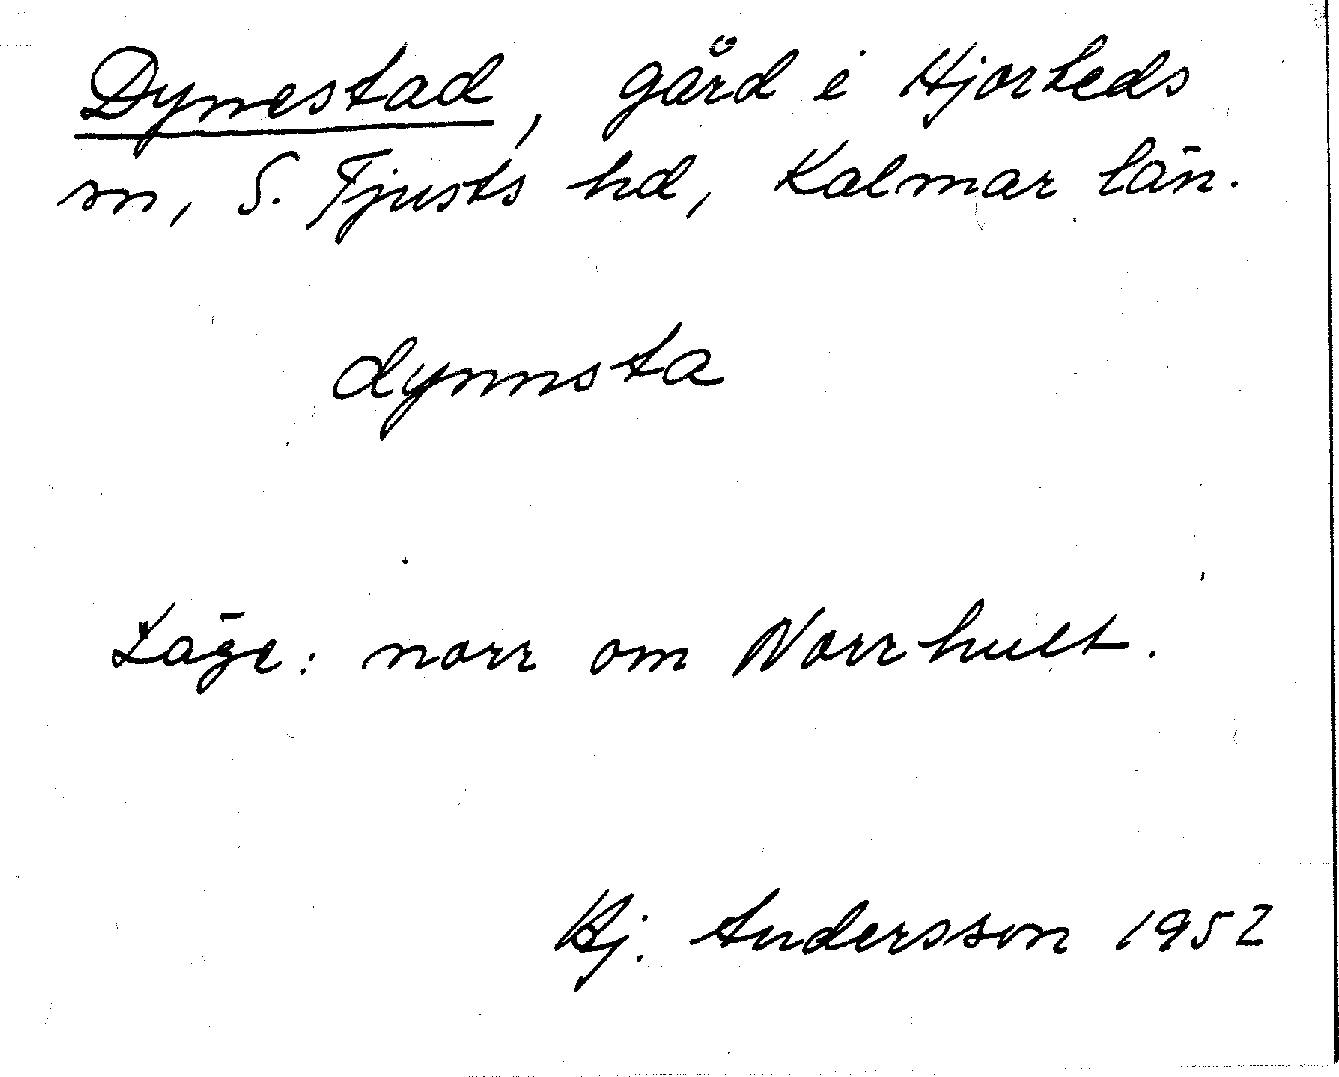 Dynestad, gård i Hjorteds
sn, S. Tjusts hd, Kalmar län.
dynnsta
Läge: norr om Norrhult.
Hj. Andersson 1952